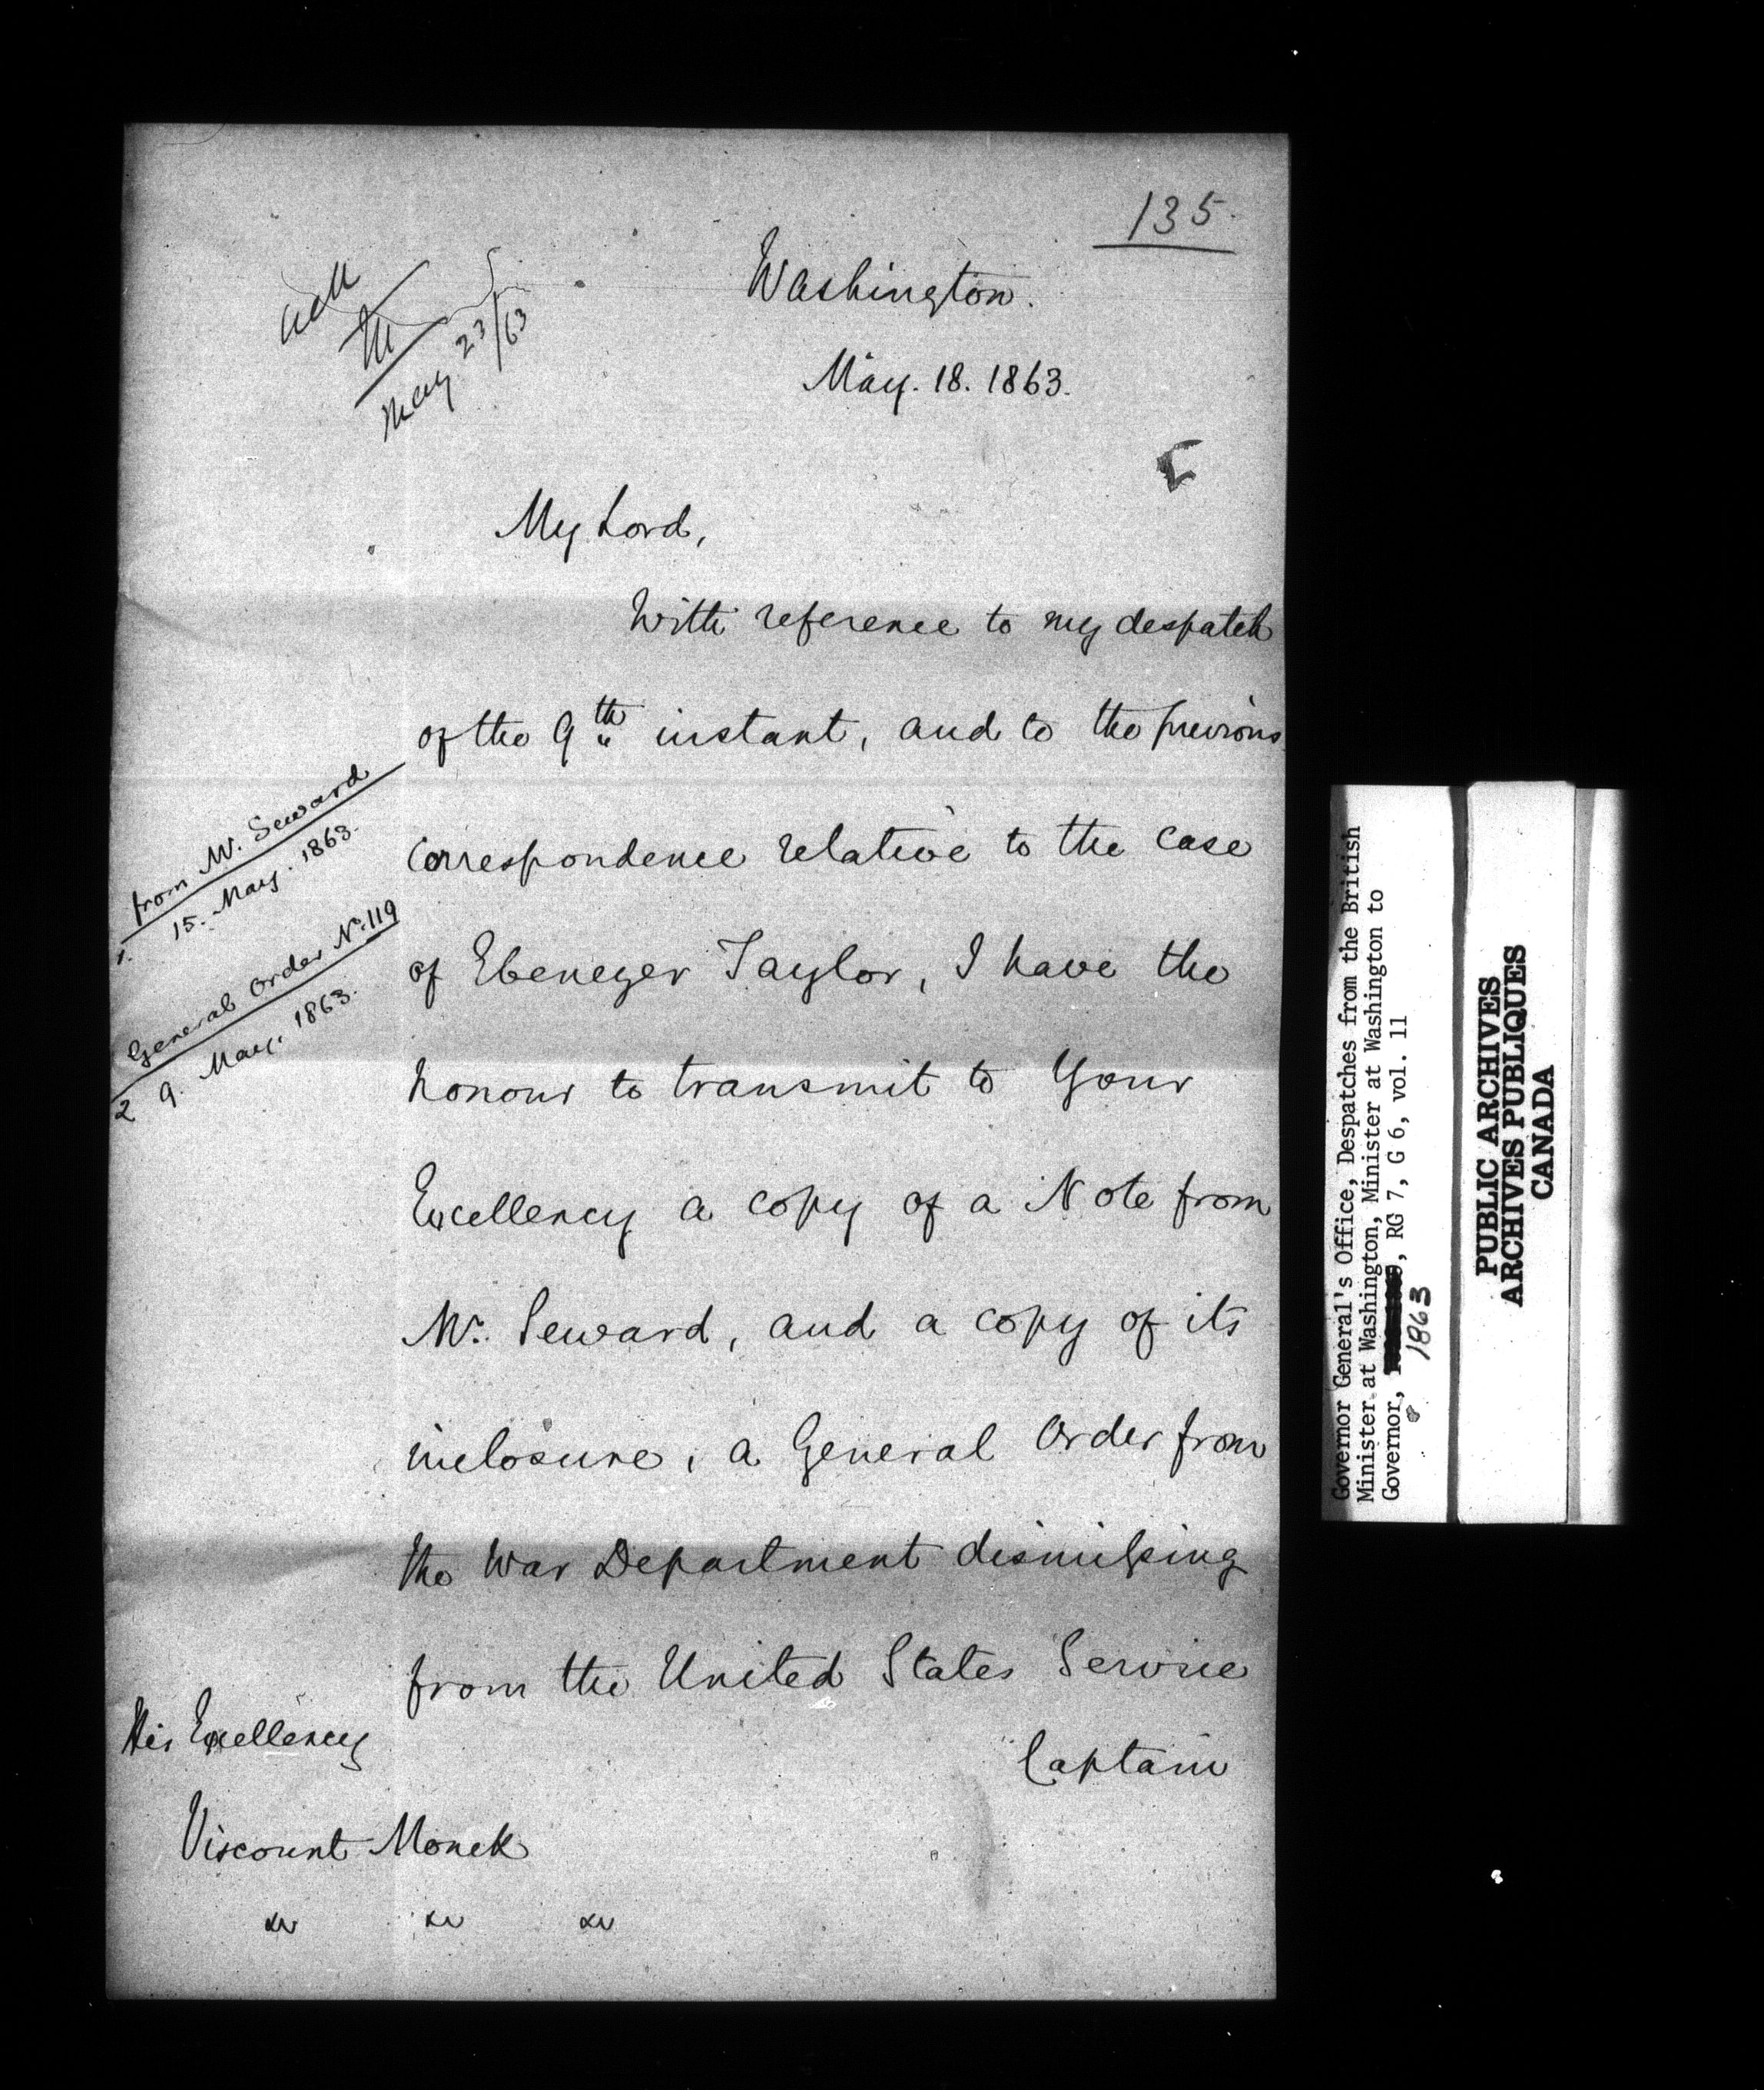 135.
Washington.
May. 18. 1863.
May 23/63
My Lord,
With reference to my despatch
of the 9th instant, and to the previous
correspondence relative to the case
of Ebenezer Taylor, I have the
honour to transmit to Your
Excellency a copy of a Note from
Mr. Seward, and a copy of its
inclosure, a General Order from
the War Department dismissing
from the United States Service
Captain
1. from Mr. Seward
15. May. 1863.
2 General Order No. 119
9. May. 1863.
His Excellency
Viscount Monck
&c &c &c
Governor General's Office, Despatches from the British
Minister at Washington, Minister at Washington to
Governor, , RG 7, G 6, vol. 11
1863
PUBLIC ARCHIVES
ARCHIVES PUBLIQUES
CANADA